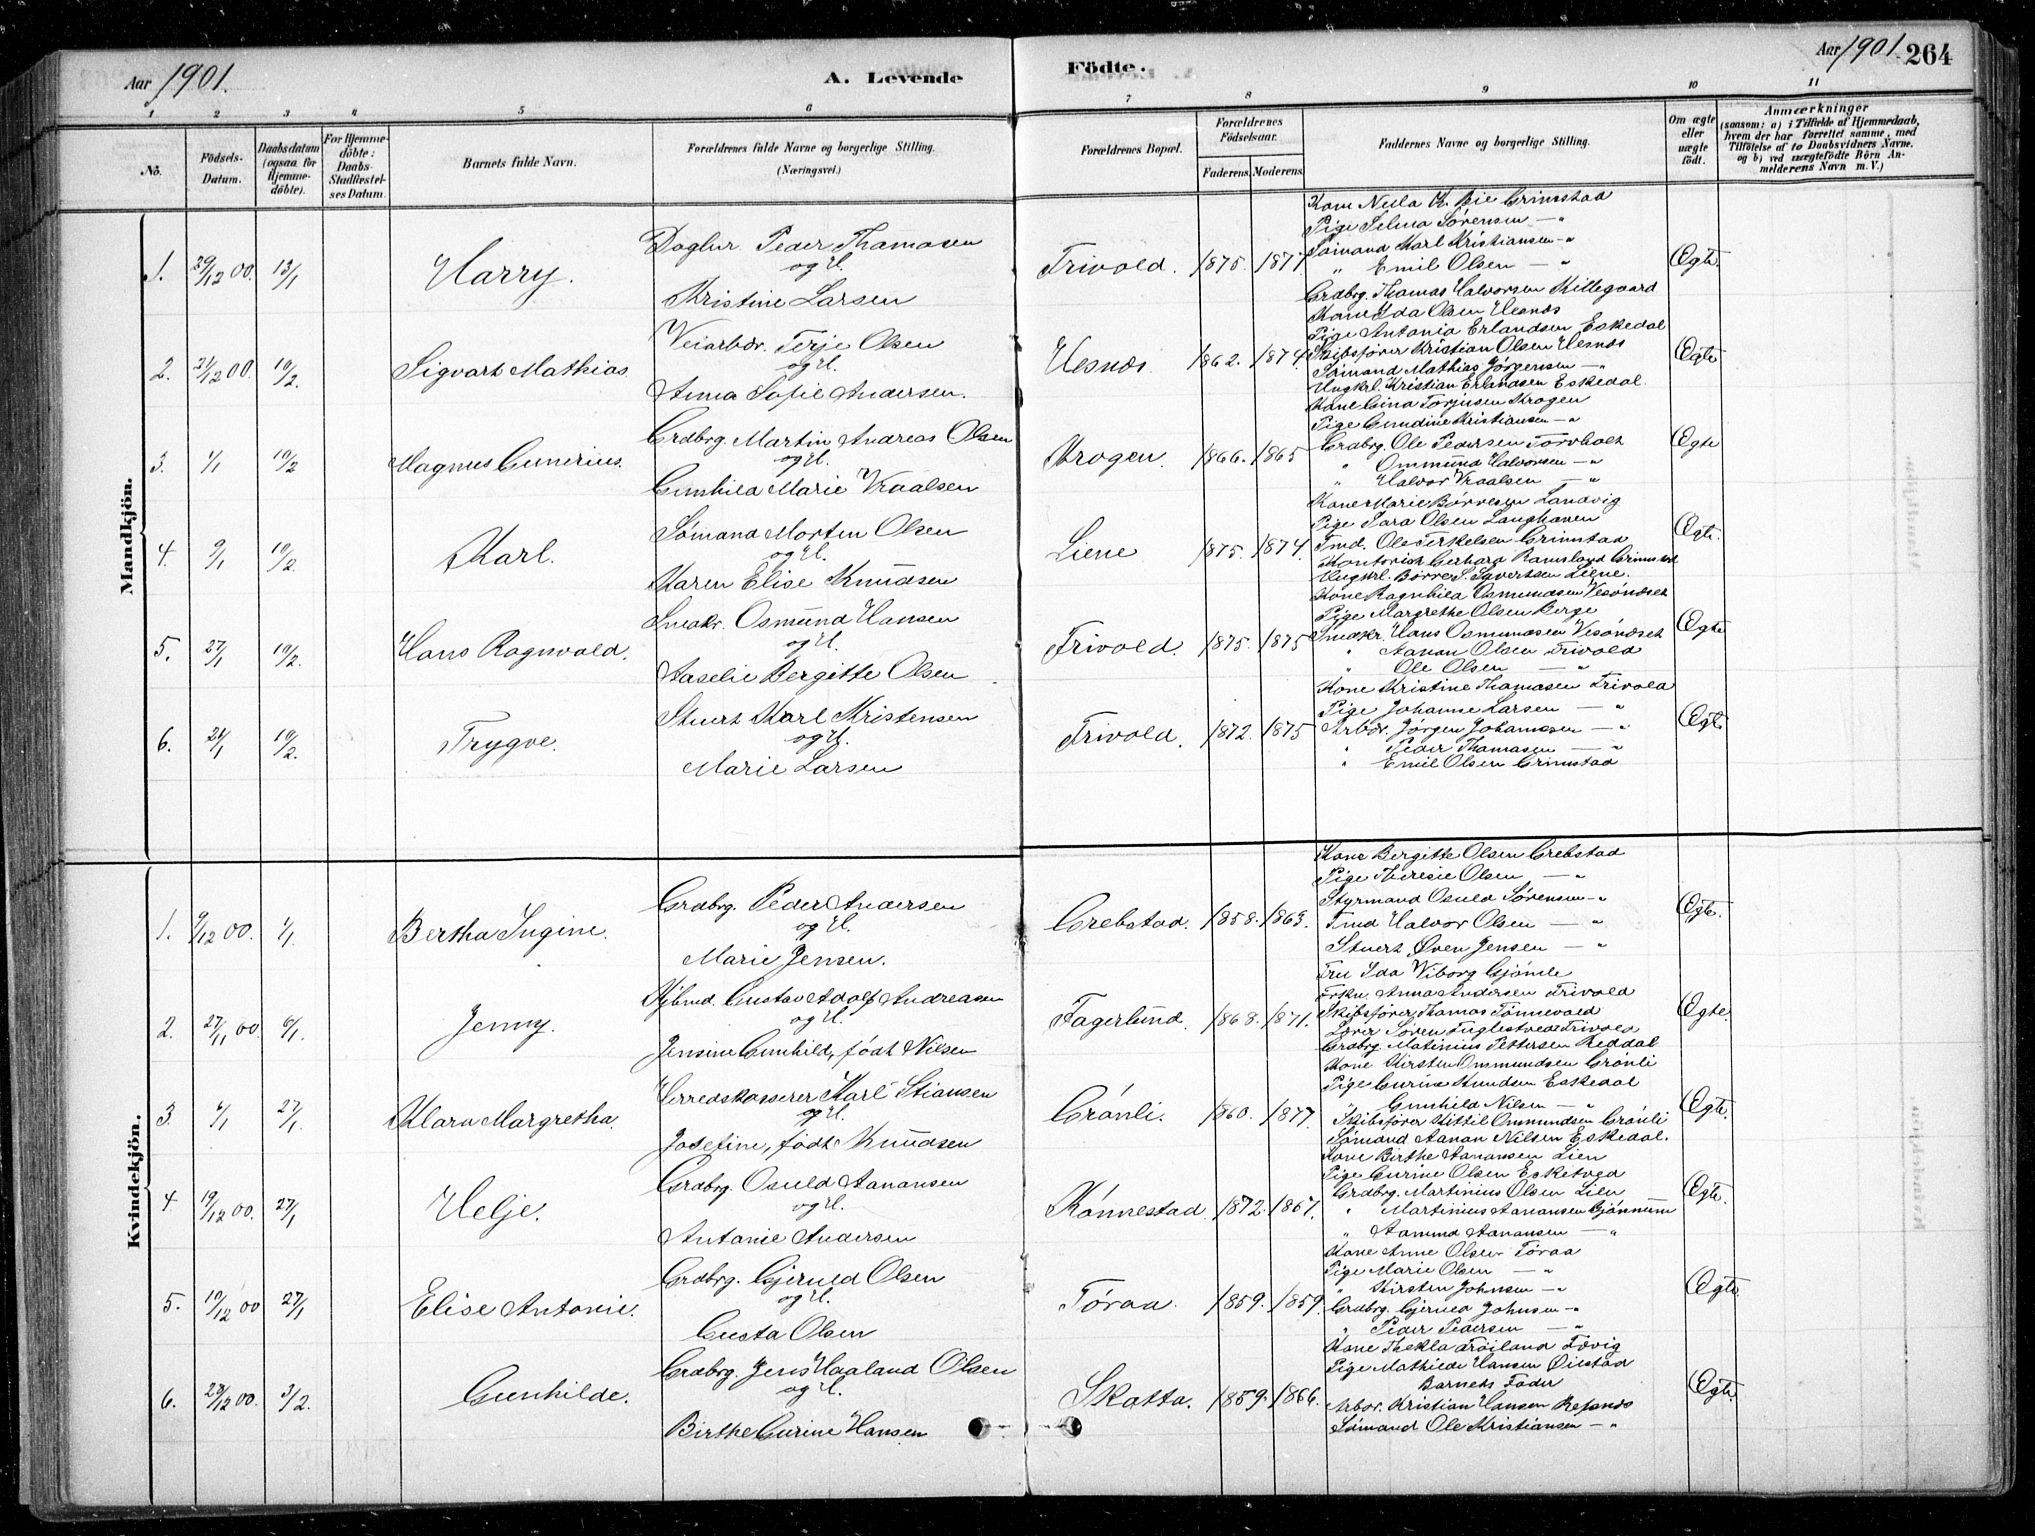 Aar 1901.
A. Levende
Födte.
Aar 1901. 264
1 2 3 4 5 6 7 8 9 10 11
No.
Födsels-Datum.
Daabsdatum (ogsaa for Hjemmedöbte).
For Hjemmedöbte: Daabs-Stadfæstelses Datum
Barnets fulde Navn.
Forældrenes fulde Navne og borgerlige Stilling. (Næringsvei.)
Forældrenes Bopæl.
Forældrenes Födselsaar.
Faderens. Moderens.
Faddernes Navne og borgerlige Stilling.
Om ægte eller uægte födt.
Anmærkninger
(saasom: a) i Tilfælde af Hjemmedaab, hvem der har forrettet samme, med Tilföielse af to Daabsvidners Navne. og b) ved uægtefödte Börn Anmelderens Navn m. V.)
Mandkjön.
1. 29/12 00. 13/1 Harry.
Daglnr. Peder Thomasen
og H.
Kristine Larsen
Frivold. 1875. 1877
Kone Nella K. Bie Grimstad
Pige Selma Sørensen — "
Sømand Karl Kristiansen — "
" Emil Olsen — "
Grdbrg. Thomas Halvorsen Killegaard
Egte
2. 21/12 00. 10/2 Sigvart Mathias.
Veiarbdr. Terje Olsen
og H.
Anna Sofie Andersen.
Hesnæs. 1862. 1874.
Kone Ida Olsen Hesnæs
Pige Antonia Erlandsen Eskedal
Skibsfører Kristian Olsen Hesnæs
Sømand Mathias Jørgensen — "
Ungkrl. Kristian Erlandsen Eskedal.
Egte
3. 4/1 10/2 Magnus Gunerius.
Grdbrg. Martin Andreas Olsen
og H.
Gunhild Marie Vraalsen
Krogen. 1866. 1865
Kone Gina Torjusen Krogen
Pige Gundine Kristiansen — "
Grdbrg. Ole Pedersen Torvholt
" Ommund Halvorsen — "
" Halvor Vraalsen — "
Egte
4. 9/1 10/2 Karl.
Sømand Morten Olsen
og H.
Karen Elise Knudsen
Liene 1875. 1874.
Kone Marie Børresen Landvig
Pige Sara Olsen Langhaven
Tmd. Ole Terkelsen Grimstad
Kontorist Gerhard Ramsland Grimstad
Ungkrl. Børre S. Syvertsen Liene.
Egte.
5. 27/1 10/2. Hans Ragnvald.
Smedkr. Osmund Hansen
og H.
Aaselie Bergitte Olsen
Frivold. 1875. 1875
Kone Ragnhild Osmundsen Vesøndset
Pige Margrethe Olsen Berge
Smedkr. Hans Osmundsen Vesøndset
" Aanon Olsen Frivold
" Ole Olsen — "
Egte
6. 21/1 10/2. Trygve.
Stuert Karl Kristensen
og H.
Marie Larsen
Frivold. 1872. 1875
Kone Kristine Thomasen Frivold
Pige Johanne Larsen — "
Arbdr. Jørgen Johannesen — "
" Peder Thomasen — "
" Emil Olsen Grimstad
Egte
Kvindekjön.
1. 9/12 00. 1/1. Bertha Ingine.
Grdbrg. Peder Andersen
og H.
Marie Jensen.
Grebstad. 1858. 1863.
Kone Bergitte Olsen Grebstad
Pige Theresie Olsen — "
Styrmand Osuld Sørensen — "
Tmd Halvor Olsen — "
Stuert Øven Jensen — "
Egte.
2. 27/11 00 6/1. Jenny.
Kjbmd. Gustav Adolf Andreasen
og H.
Jensine Gunhild, født Nilsen
Fagerlund. 1868. 1871.
Fru Ida Viborg Gjømle
Frkn. Anna Andersen Frivold
Skibsfører Thomas Tønnevold
Lærer Søren Fuglestvedt Frivold
Grdbrg Matinius Pettersen Reddal
Egte.
3. 6/1 27/1. Klara Margretha.
Herredskasserer Karl Stiansen
og H.
Josefine, født Knudsen
Grønli. 1860. 1877.
Kone Kirsten Ommundsen Grønli
Pige Gurine Knudsen Eskedal
" Gunhild Nilsen — "
Skibsfører Kittil Ommundsen Grønli
Sømand Aanon Nilsen Eskedal.
Egte.
4 19/12 00. 27/1 Helje.
Grdbrg. Osuld Aanansen
og H.
Antonie Andersen
Kønnestad 1872. 1867.
Kone Birthe Aanansen Lien
Pige Gurine Olsen Esketved
Grdbrg. Martinius Olsen Lien
" Martinius Aanansen Gjønnum
" Aamund Aanansen — "
Egte.
5. 10/12 00 27/1 Elise Antonie.
Grdbrg. Gjeruld Olsen
og H.
Gusta Olsen
Føraa. 1859. 1859.
Kone Anne Olsen Føraa
Pige Marie Olsen — "
" Kirsten Johnsen — "
Grdbrg. Gjeruld Johnsen — "
" Peder Pedersen — "
Egte.
6. 29/12 00. 3/2. Gunhilde.
Grdbrg. Jens Haaland Olsen
og H.
Birthe Gurine Hansen
Skatta. 1859. 1866.
Kone Thekla Frøiland Fævig
Pige Mathilde Hansen Øilstad
Barnets Fader
Arbdr. Kristian Hansen Refsnæs
Sømand Ole Kristiansen — "
Egte.